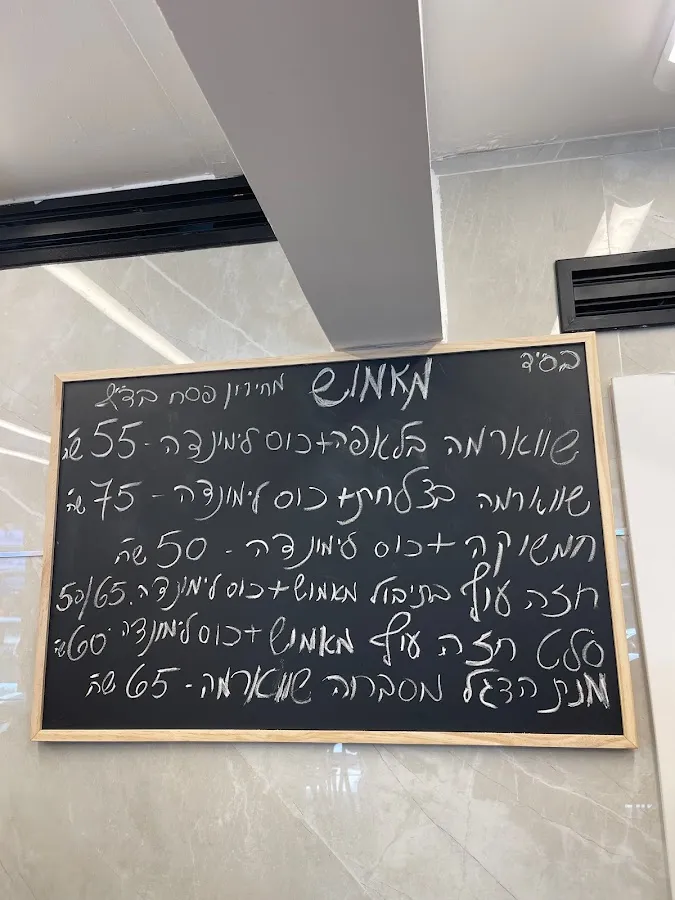 בס״ד
מאמוש מחירון פסח בד״צ
שווארמה בלאפה+כוס לימונדה - 55 ש״ח
שווארמה בצלחת+כוס לימונדה - 75 ש״ח
חמשוקה+כוס לימונדה - 50 ש״ח
חזה עוף בתיבול מאמוש+כוס לימונדה. 50/65
סלט חזה עוף מאמוש+כוס לימונדה 60 ש״ח
מנת הדגל מסבחה שווארמה - 65 ש״ח